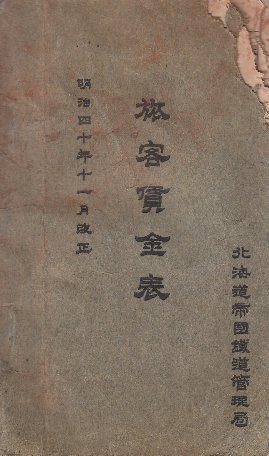 北海道帝國鐵道管理局
旅客賃金表
明治四十年十一月改正